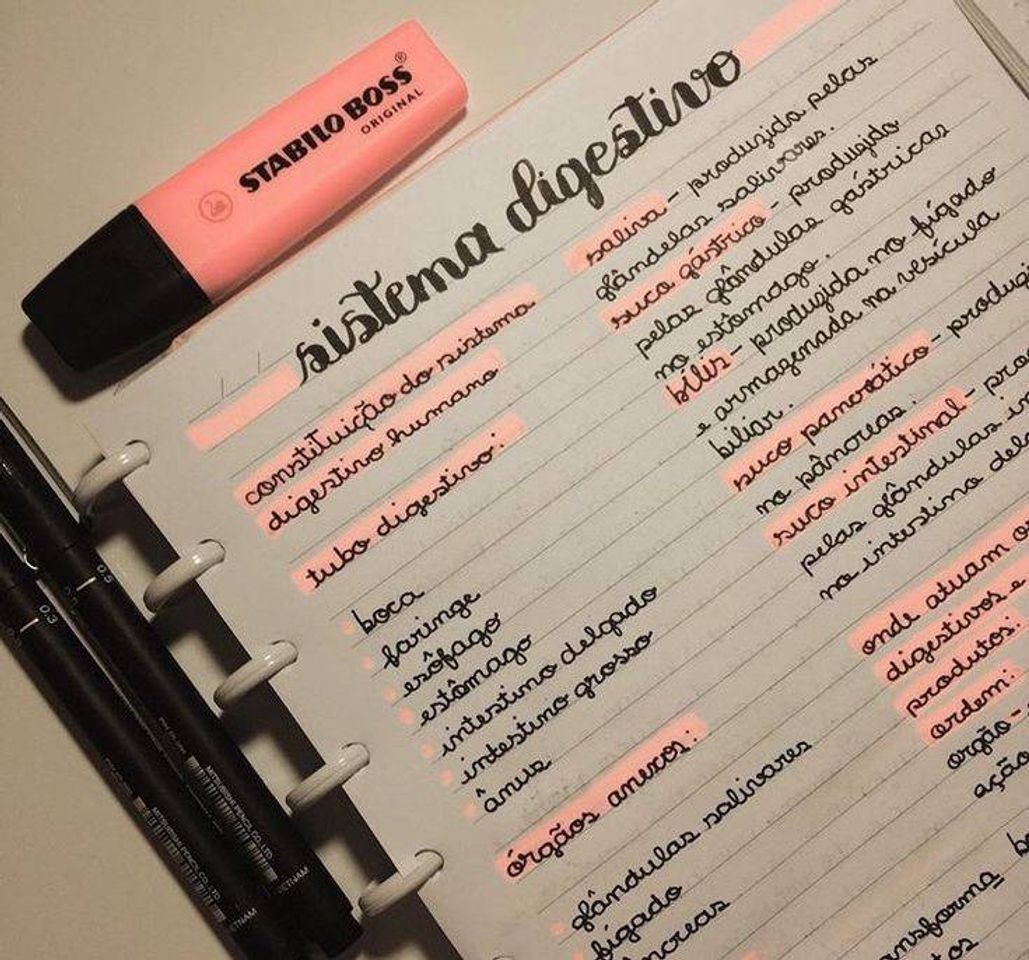 STABILO BOSS®
ORIGINAL
sistema digestivo
constituição do sistema
digestivo humano
tubo digestivo:
boca
faringe
esôfago
estômago
intestino delgado
intestino grosso
ânus
órgãos anexos:
glândulas salivares
fígado
saliva - produzida pelas
glândelas salivares.
suco gástrico - produzido
pelas glândulas gástricas
no estômago.
bílis - produzida no fígado
e armazenada na vesícula
biliar.
suco pancreático -
no pâncreas.
suco intestinal -
pelas glândulas
no intestino
onde atuam
digestivos e
produtos:
ordem:
orgão -
ação
0.5
0.3
MITSUBISHI PENCIL CO. LTD.
MITSUBISHI PENCIL CO. LTD.